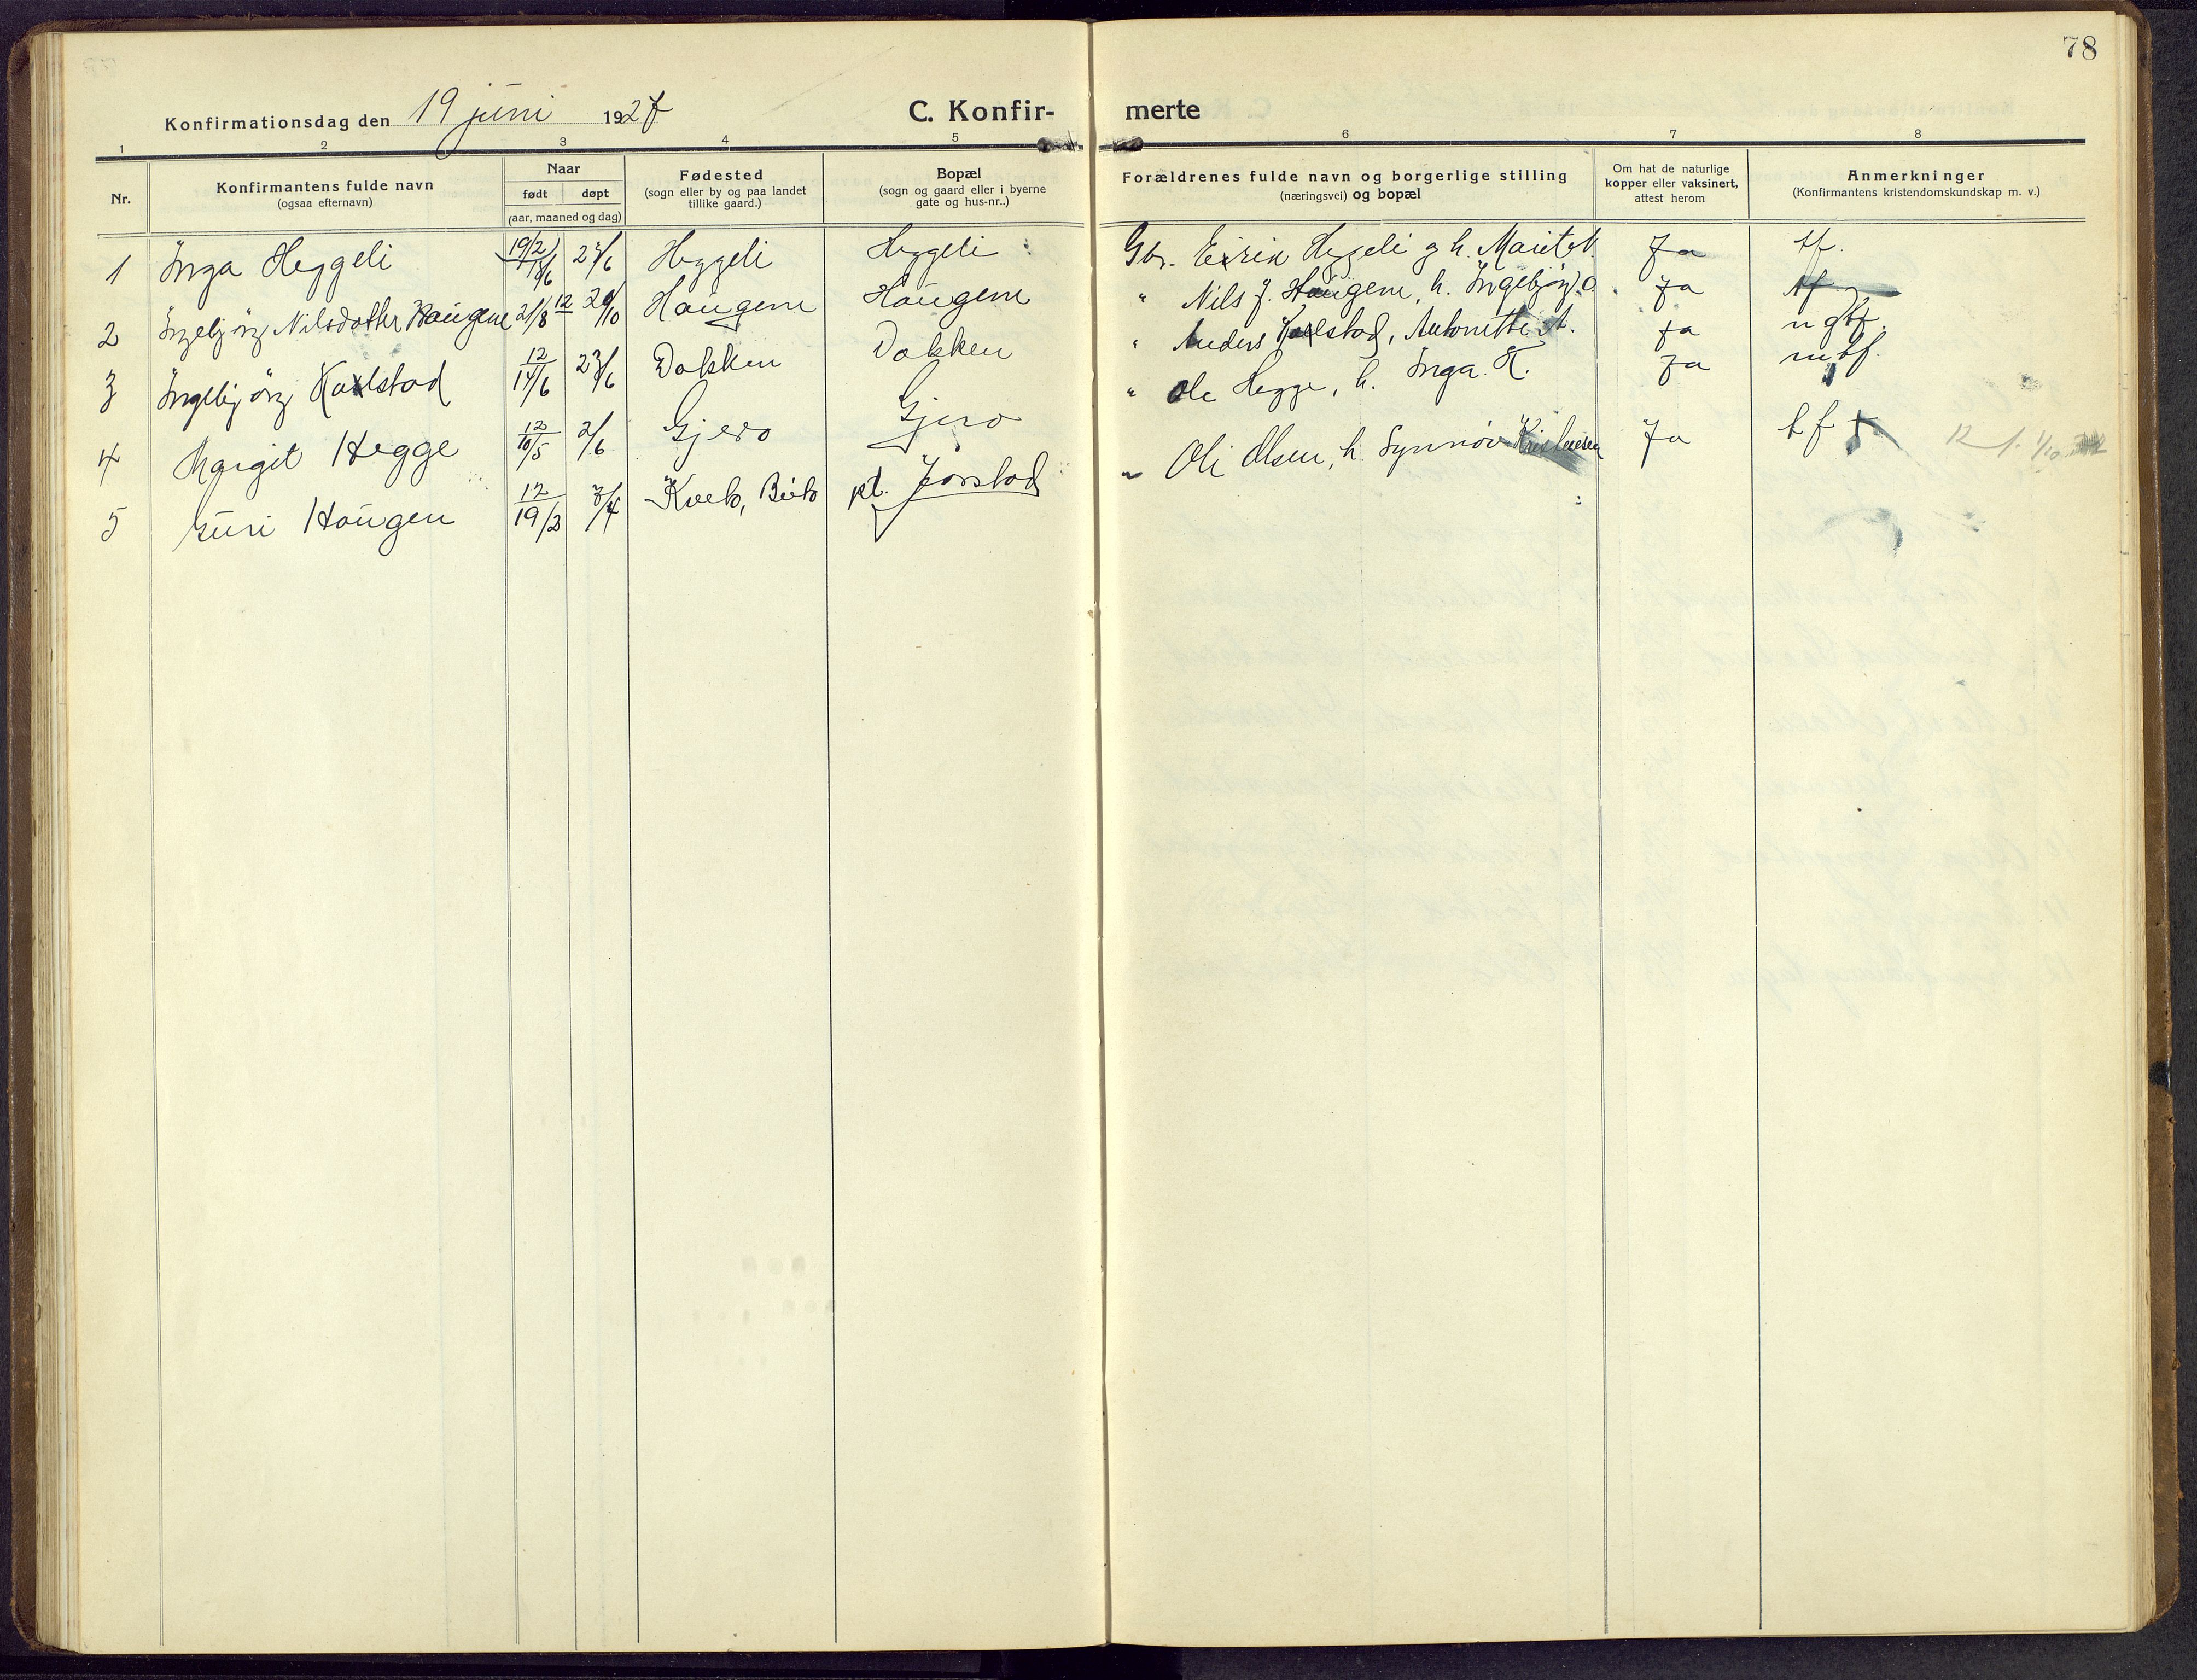 78
Konfirmationsdag den 19 juni 1927 C. Konfir- merte
1 2 3 4 5 6 7 8
Nr.
Konfirmantens fulde navn
(ogsaa efternavn)
Naar
født døpt
(aar, maaned og dag)
Fødested
(sogn eller by og paa landet
tillike gaard.)
Bopæl
(sogn og gaard eller i byerne
gate og hus-nr..)
Forældrenes fulde navn og borgerlige stilling
(næringsvei) og bopæl
Om hat de naturlige
kopper eller vaksinert,
attest herom
Anmerkninger
(Konfirmantens kristendomskundskap m. v.)
1 Inga Heggeli 19/2 Heggeli Heggeli Gbr. Heggeli og h. Ja tf.
2 Ingebjörg Nilsdotter Haugene 21/8 12 Haugene Haugene " Nils J. Haugene, h. Ingebjörg O. Ja
3 Ingebjörg Karlstad 12 14/6 23/6 Dokken Dokken " Anders Karlstad, Antonette A. Ja
4 Margit Hegge 12 10/5 2/6 Gjero Gjero " Ole Hegge, h. Inga K. Ja mtf.
5 Guri Haugen 12 19/2 7/4 pl. Jorstad " Ole Olsen, h. Synnöv Kristensen Ja tf